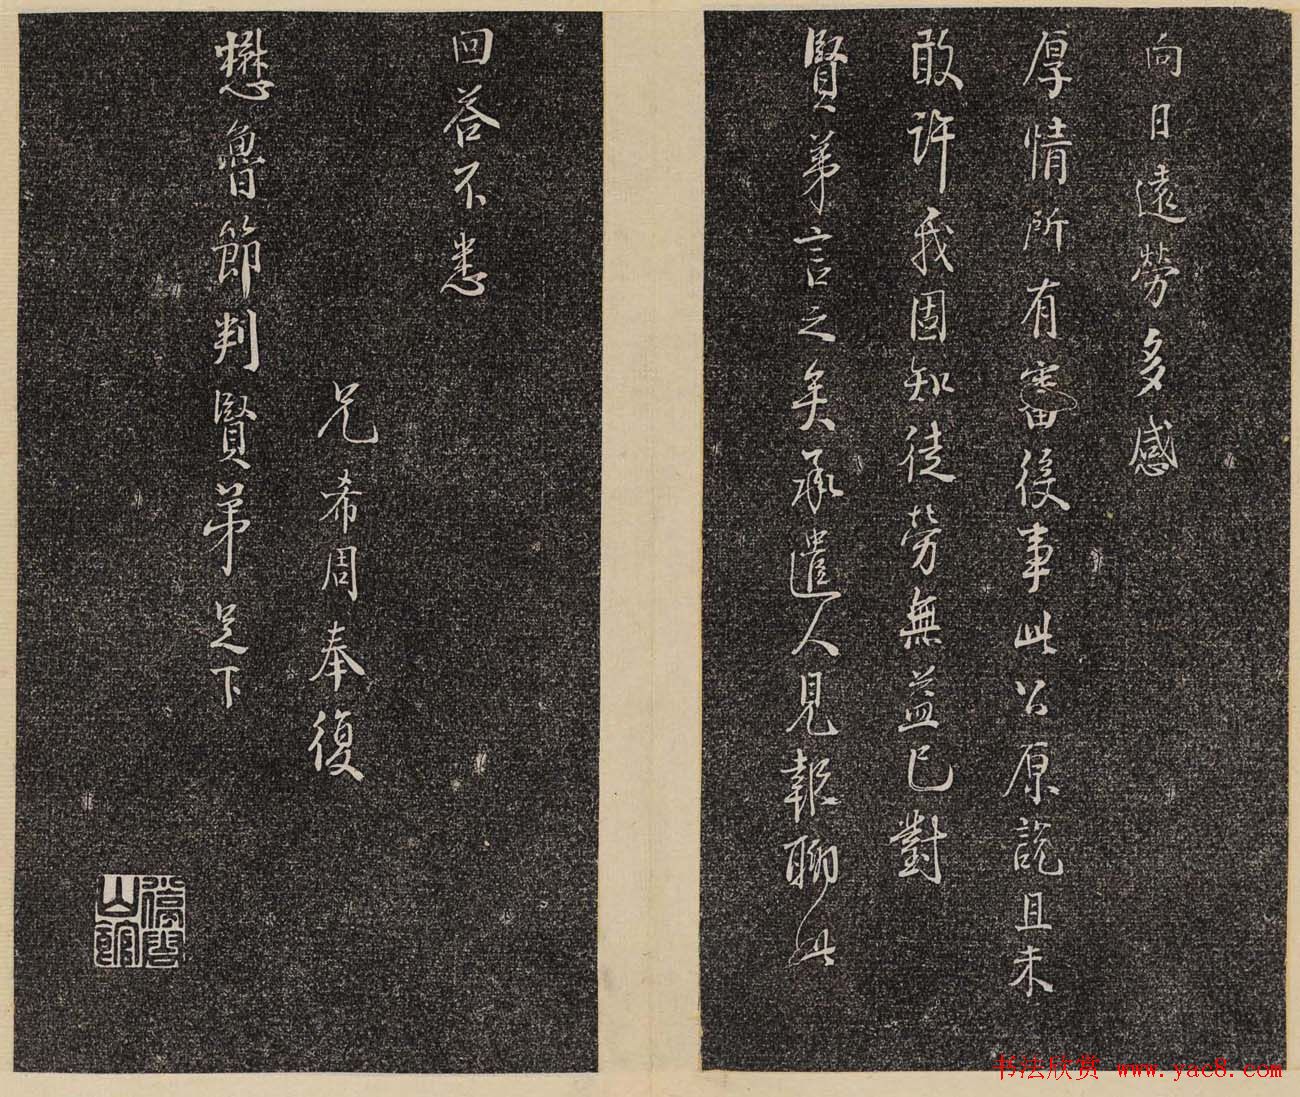 向日遠勞多感
厚情所有審後事此公原説且未
敢許我固知徒勞無益已對
賢弟言之矣承遣人見報聊此
回荅不悉
兄希周奉復
懋魯節判賢弟足下
停雲
山館
书法欣赏 www.yac8.com